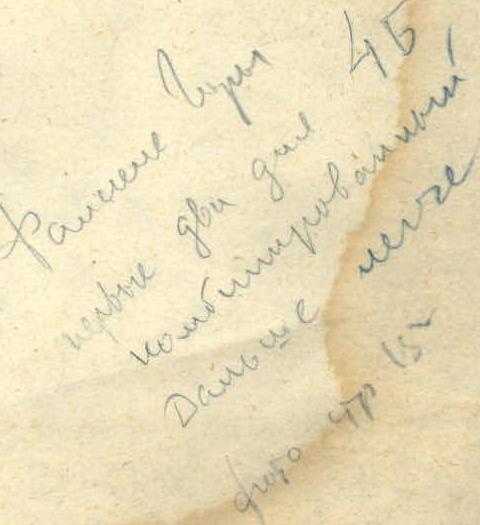 Фанские Горы 4Б
первые два дня
комбинированный
Дальше легче
фото стр 152